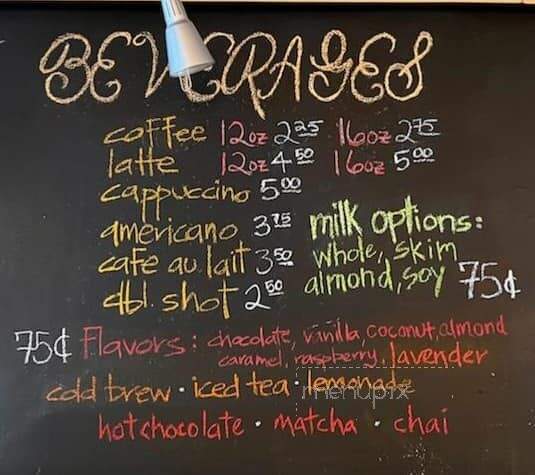 BEVERAGES
coffee 12oz 2.25 16oz 2.75
latte 12oz 4.50 16oz 5.00
cappuccino 5.00
americano 3.75
cafe au.lait 3.50
dbl. shot 2.50
milk options:
whole, skim
almond, soy 75¢
75¢ Flavors: chocolate, vanilla, coconut, almond
caramel, raspberry, lavender
cold brew · iced tea · lemonade
menupix
hot chocolate · matcha · chai